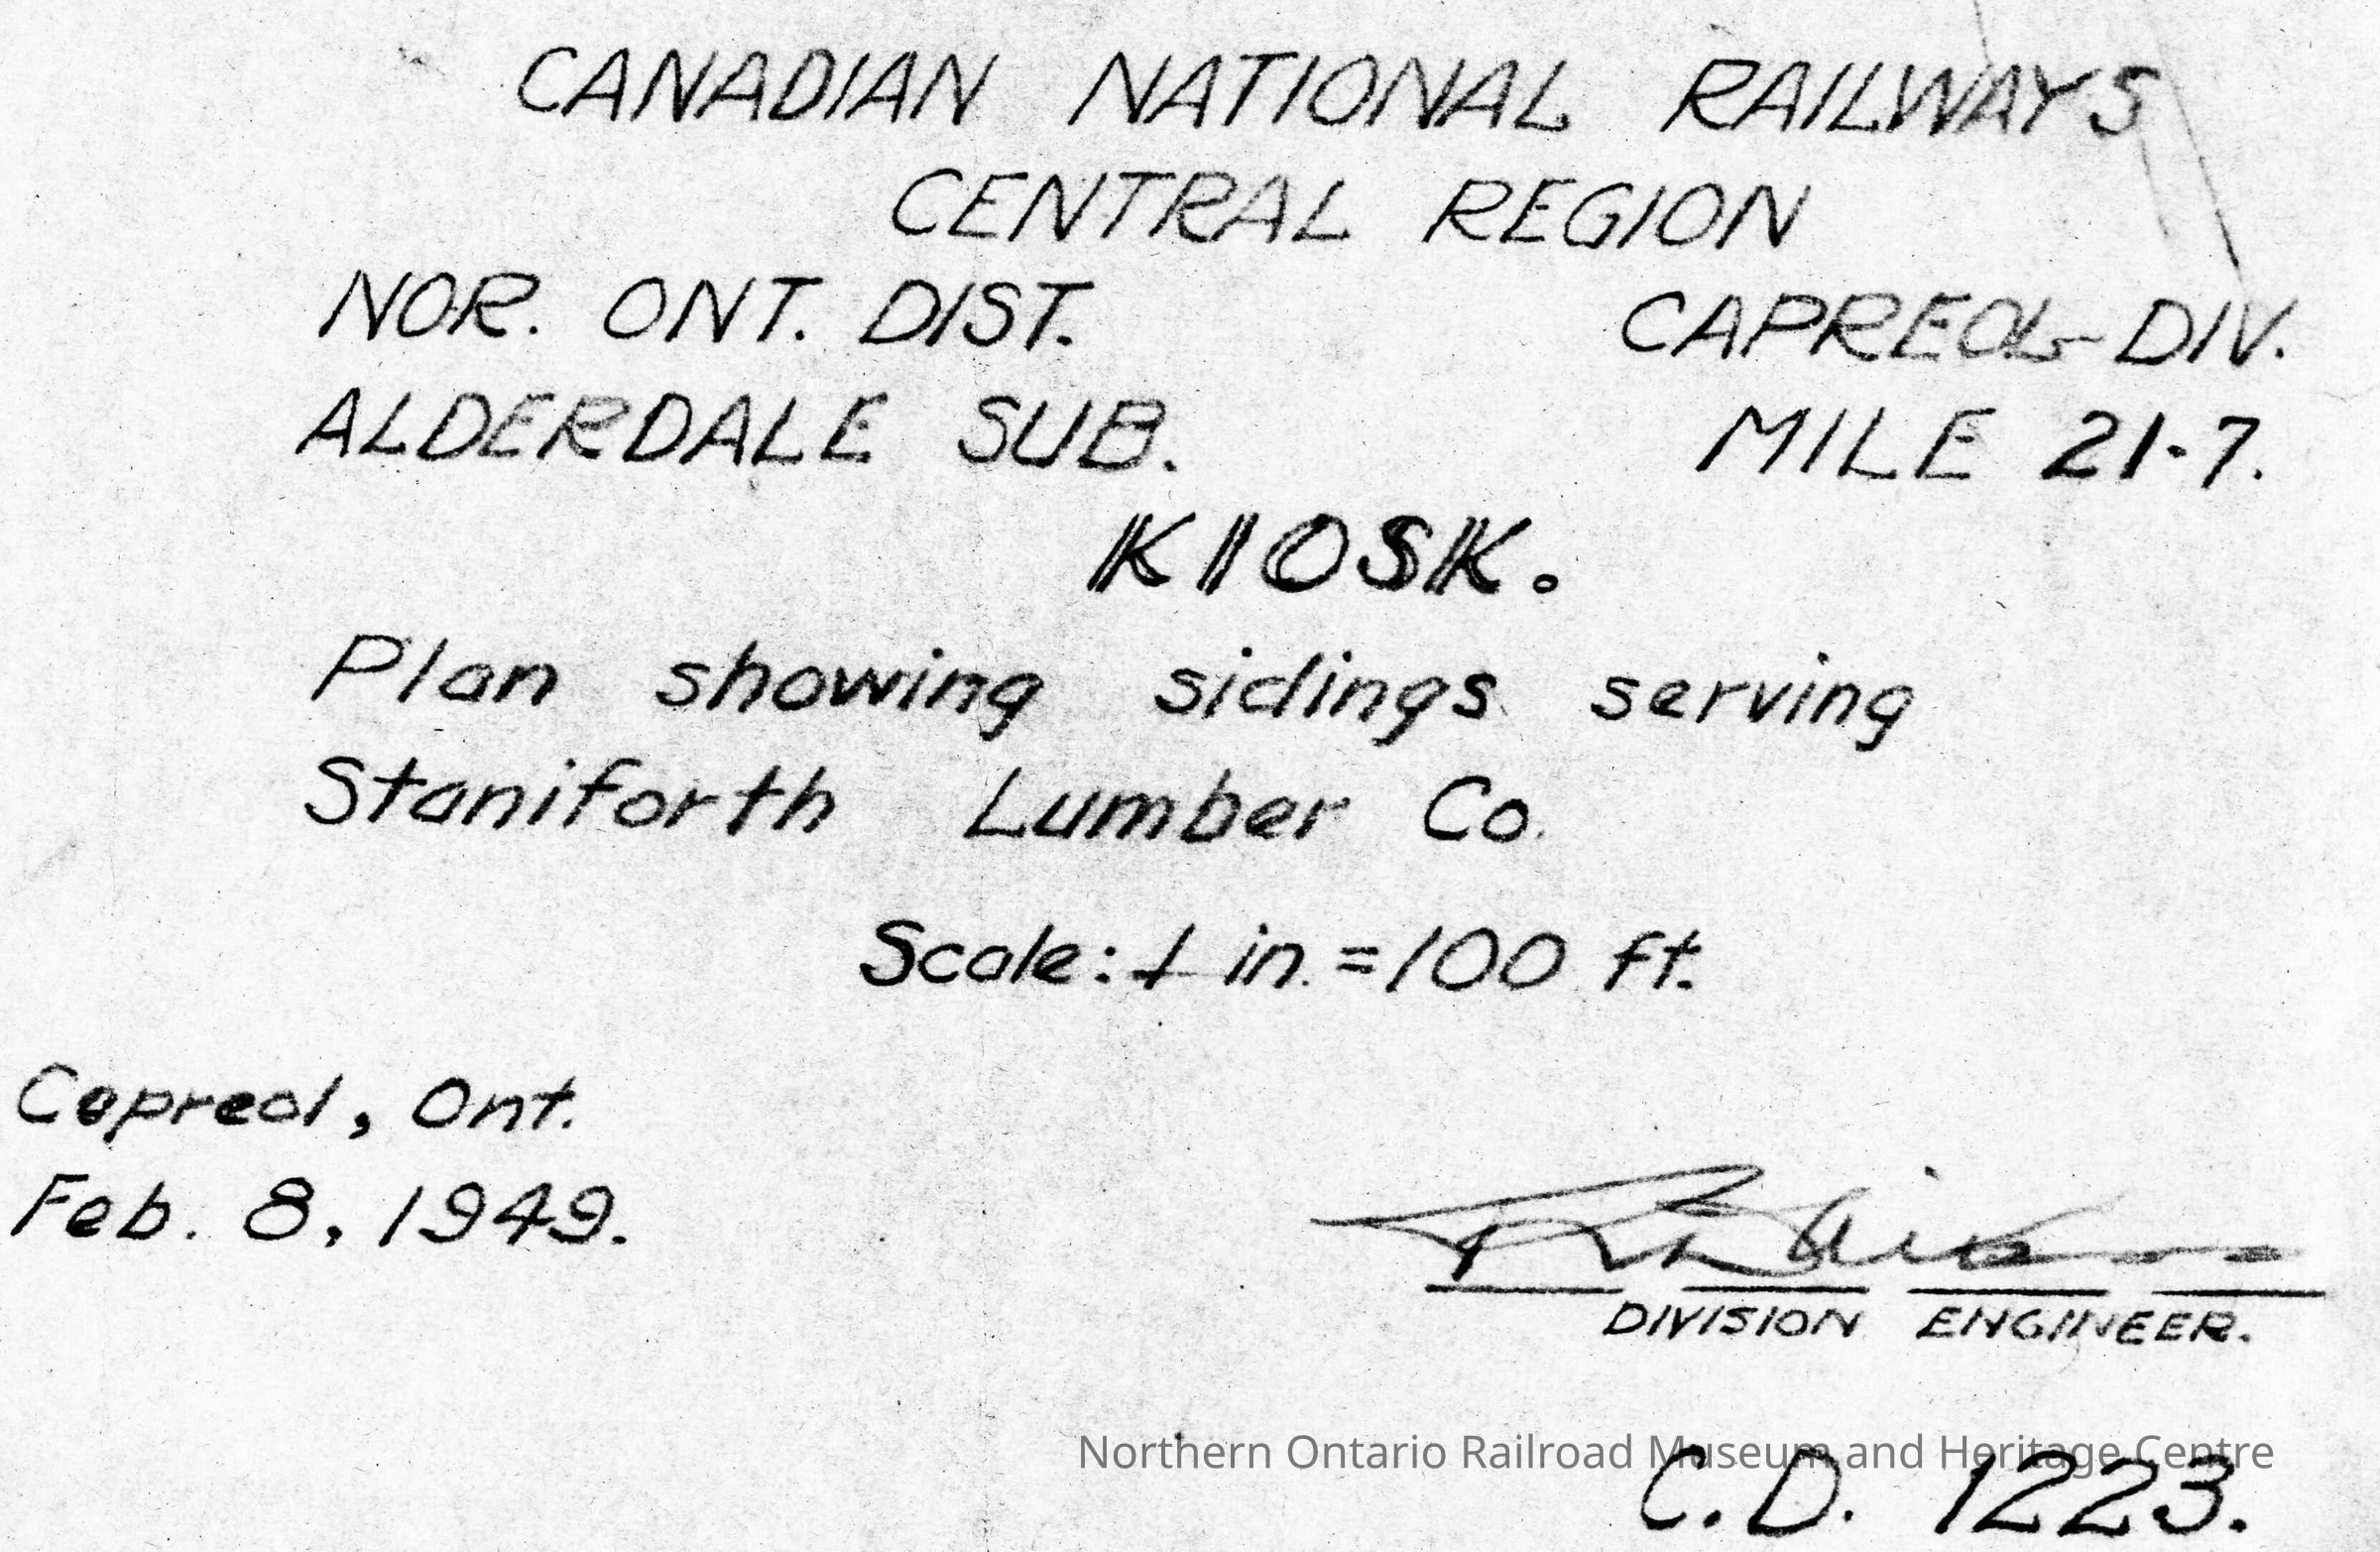 CANADIAN NATIONAL RAILWAYS
CENTRAL REGION
NOR. ONT. DIST. CAPREOL DIV.
ALDERDALE SUB. MILE 21.7.
KIOSK.
Plan showing sidings serving
Staniforth Lumber Co.
Scale: 1 in. = 100 ft.
Capreol, Ont.
Feb. 8, 1949.
DIVISION ENGINEER.
Northern Ontario Railroad Museum and Heritage Centre
C.D. 1223.